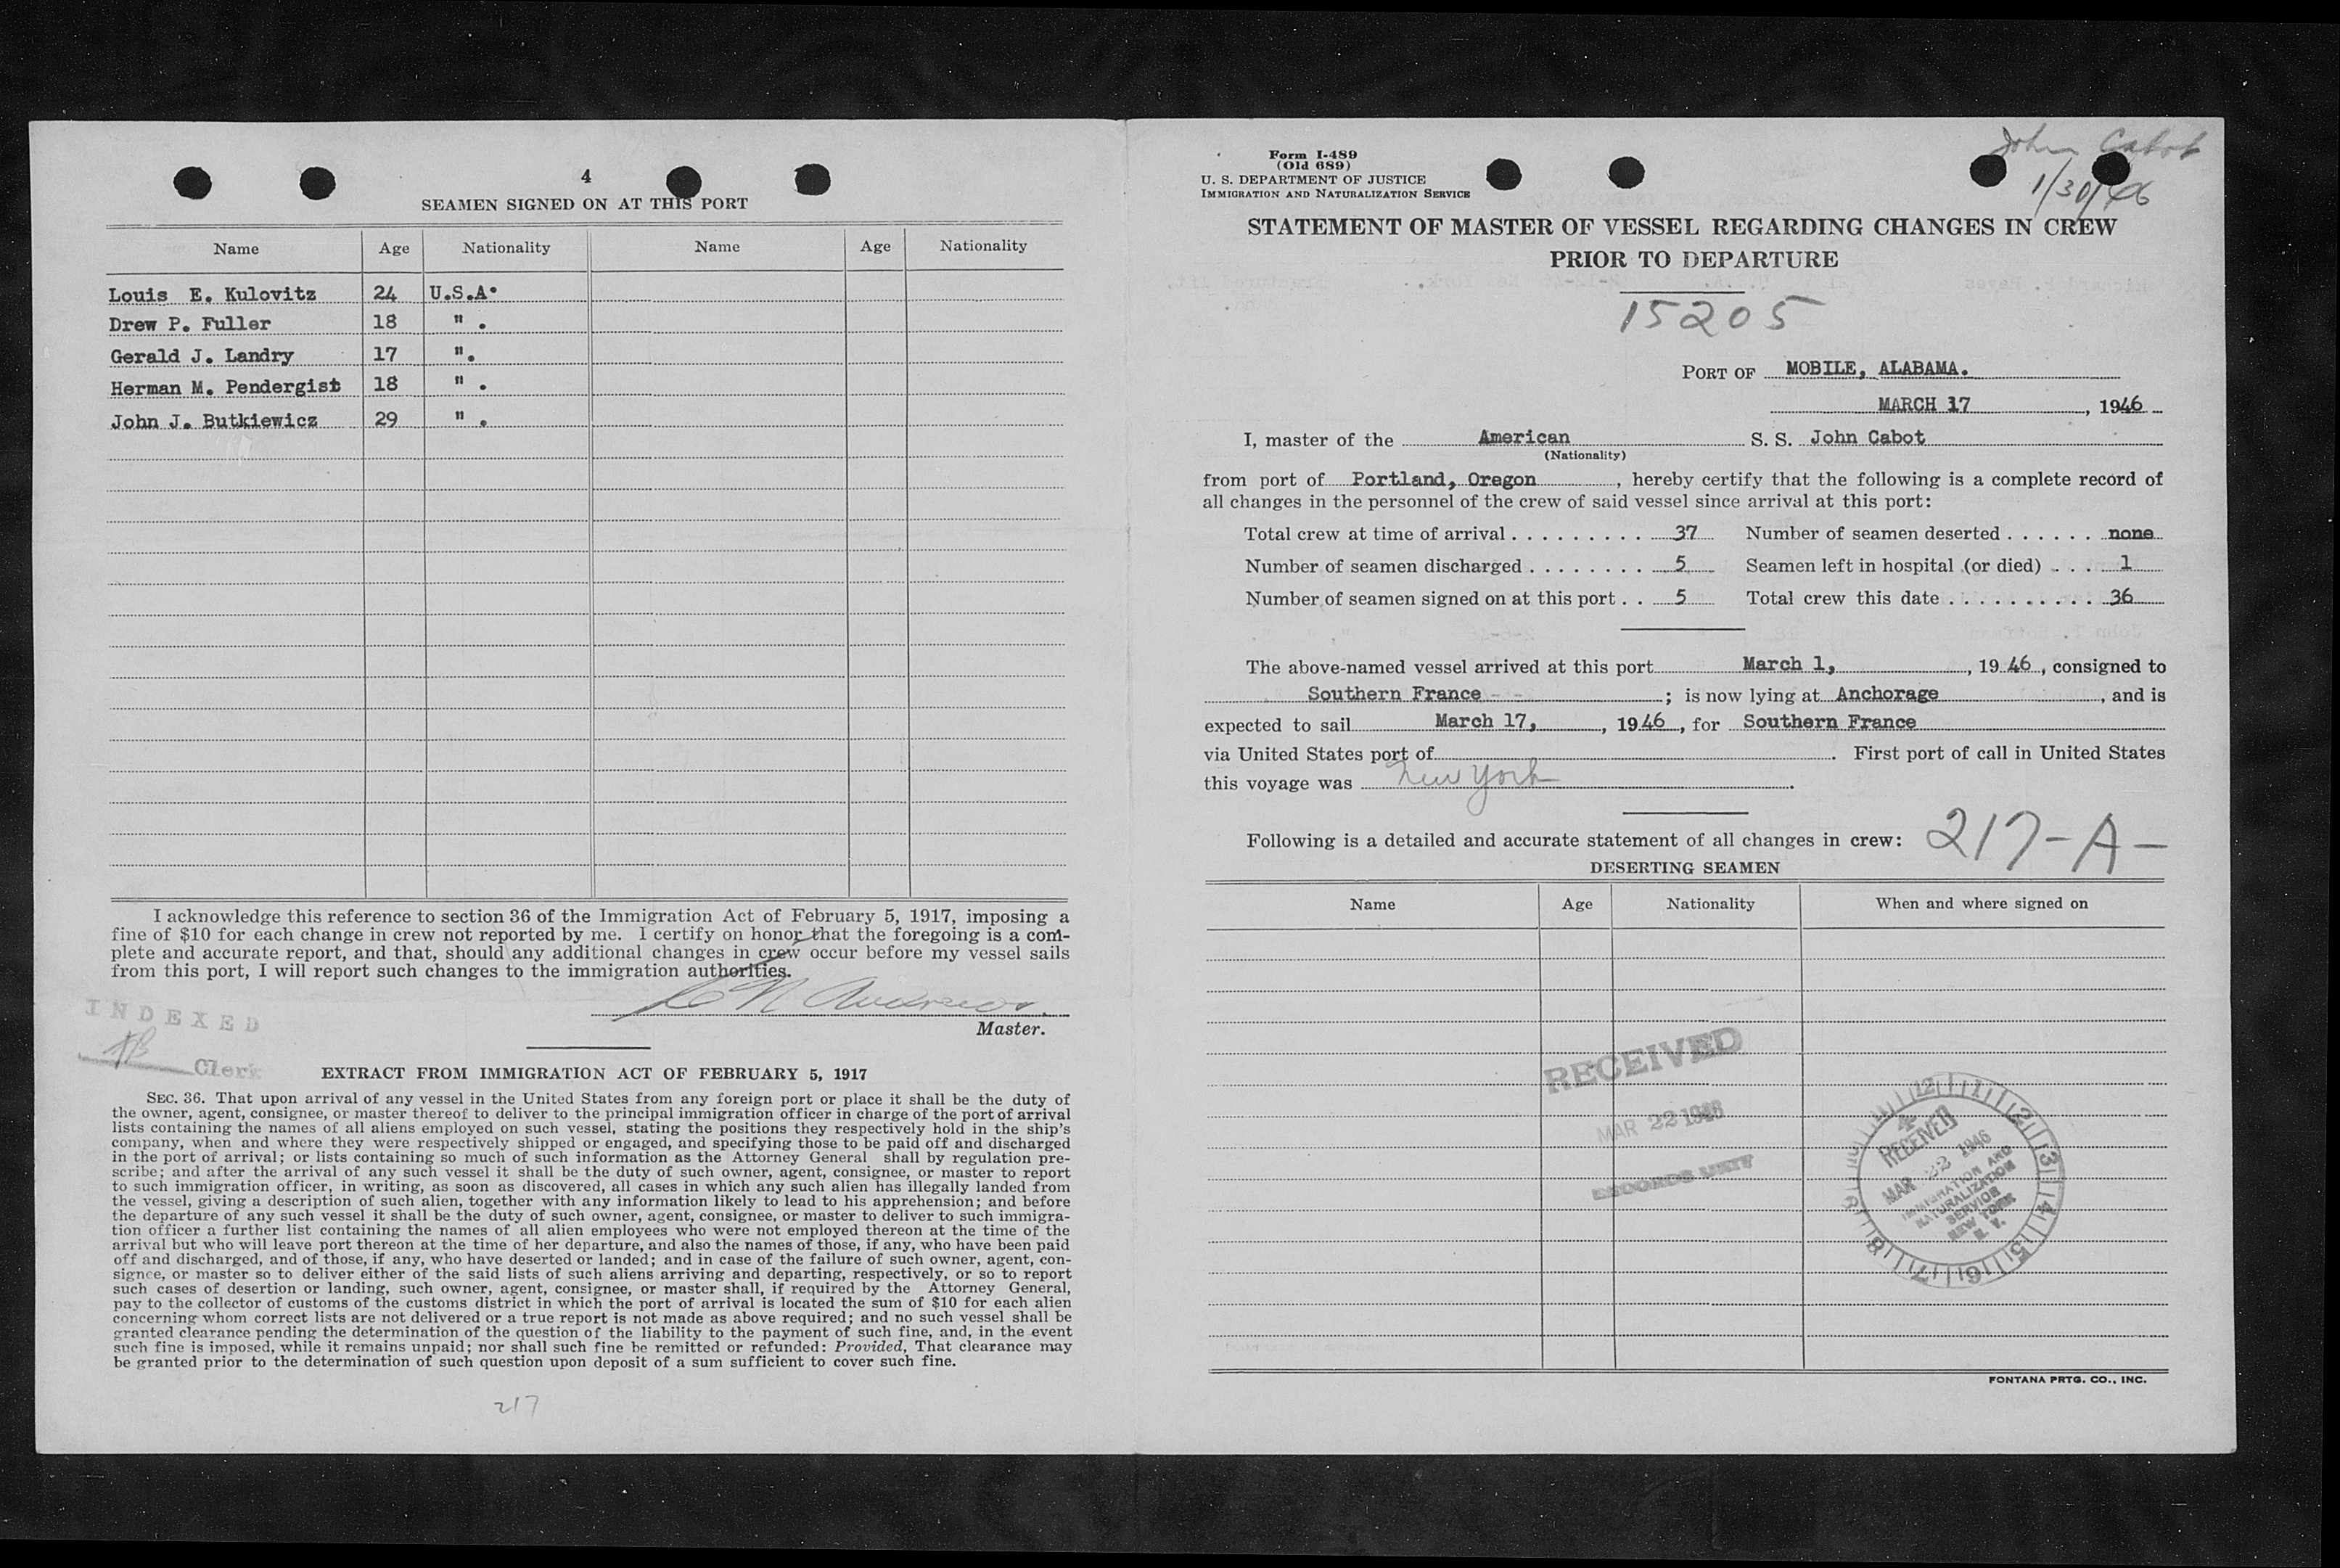 4
SEAMEN SIGNED ON AT THIS PORT
Name Age Nationality Name Age Nationality
Louis E. Kulovitz 24 U.S.A.
Drew P. Fuller 18 " .
Gerald J. Landry 17 ".
Herman M. Pendergist 18 " .
John J. Butkiewicz 29 " .
I acknowledge this reference to section 36 of the Immigration Act of February 5, 1917, imposing a
fine of $10 for each change in crew not reported by me. I certify on honor that the foregoing is a com-
plete and accurate report, and that, should any additional changes in crew occur before my vessel sails
from this port, I will report such changes to the immigration authorities.
C N Andrews
Master.
INDEXED
Clerk
EXTRACT FROM IMMIGRATION ACT OF FEBRUARY 5, 1917
SEC. 36. That upon arrival of any vessel in the United States from any foreign port or place it shall be the duty of
the owner, agent, consignee, or master thereof to deliver to the principal immigration officer in charge of the port of arrival
lists containing the names of all aliens employed on such vessel, stating the positions they respectively hold in the ship's
company, when and where they were respectively shipped or engaged, and specifying those to be paid off and discharged
in the port of arrival; or lists containing so much of such information as the Attorney General shall by regulation pre-
scribe; and after the arrival of any such vessel it shall be the duty of such owner, agent, consignee, or master to report
to such immigration officer, in writing, as soon as discovered, all cases in which any such alien has illegally landed from
the vessel, giving a description of such alien, together with any information likely to lead to his apprehension; and before
the departure of any such vessel it shall be the duty of such owner, agent, consignee, or master to deliver to such immigra-
tion officer a further list containing the names of all alien employees who were not employed thereon at the time of the
arrival but who will leave port thereon at the time of her departure, and also the names of those, if any, who have been paid
off and discharged, and of those, if any, who have deserted or landed; and in case of the failure of such owner, agent, con-
signee, or master so to deliver either of the said lists of such aliens arriving and departing, respectively, or so to report
such cases of desertion or landing, such owner, agent, consignee, or master shall, if required by the Attorney General,
pay to the collector of customs of the customs district in which the port of arrival is located the sum of $10 for each alien
concerning whom correct lists are not delivered or a true report is not made as above required; and no such vessel shall be
granted clearance pending the determination of the question of the liability to the payment of such fine, and, in the event
such fine is imposed, while it remains unpaid; nor shall such fine be remitted or refunded: Provided, That clearance may
be granted prior to the determination of such question upon deposit of a sum sufficient to cover such fine.
217
John Cabot
1/30/46
Form I-489
(Old 689)
U. S. DEPARTMENT OF JUSTICE
IMMIGRATION AND NATURALIZATION SERVICE
STATEMENT OF MASTER OF VESSEL REGARDING CHANGES IN CREW
PRIOR TO DEPARTURE
15205
PORT OF MOBILE, ALABAMA.
MARCH 17, 1946
I, master of the American S. S. John Cabot
(Nationality)
from port of Portland, Oregon, hereby certify that the following is a complete record of
all changes in the personnel of the crew of said vessel since arrival at this port:
Total crew at time of arrival . . . . . . . . . 37 Number of seamen deserted . . . . . . none
Number of seamen discharged . . . . . . . . 5 Seamen left in hospital (or died) . . . 1
Number of seamen signed on at this port . . 5 Total crew this date . . . . . . . . . . 36
The above-named vessel arrived at this port March 1, , 1946, consigned to
Southern France ; is now lying at Anchorage, and is
expected to sail March 17, , 1946, for Southern France
via United States port of . First port of call in United States
this voyage was New York .
Following is a detailed and accurate statement of all changes in crew: 217-A-
DESERTING SEAMEN
Name Age Nationality When and where signed on
RECEIVED
MAR 22 1946
RECORDS UNIT
12 1 2 3 4 5 6 7 8 9 10 11
RECEIVED
MAR 22 1946
IMMIGRATION AND
NATURALIZATION
SERVICE
NEW YORK
N. Y.
FONTANA PRTG. CO., INC.